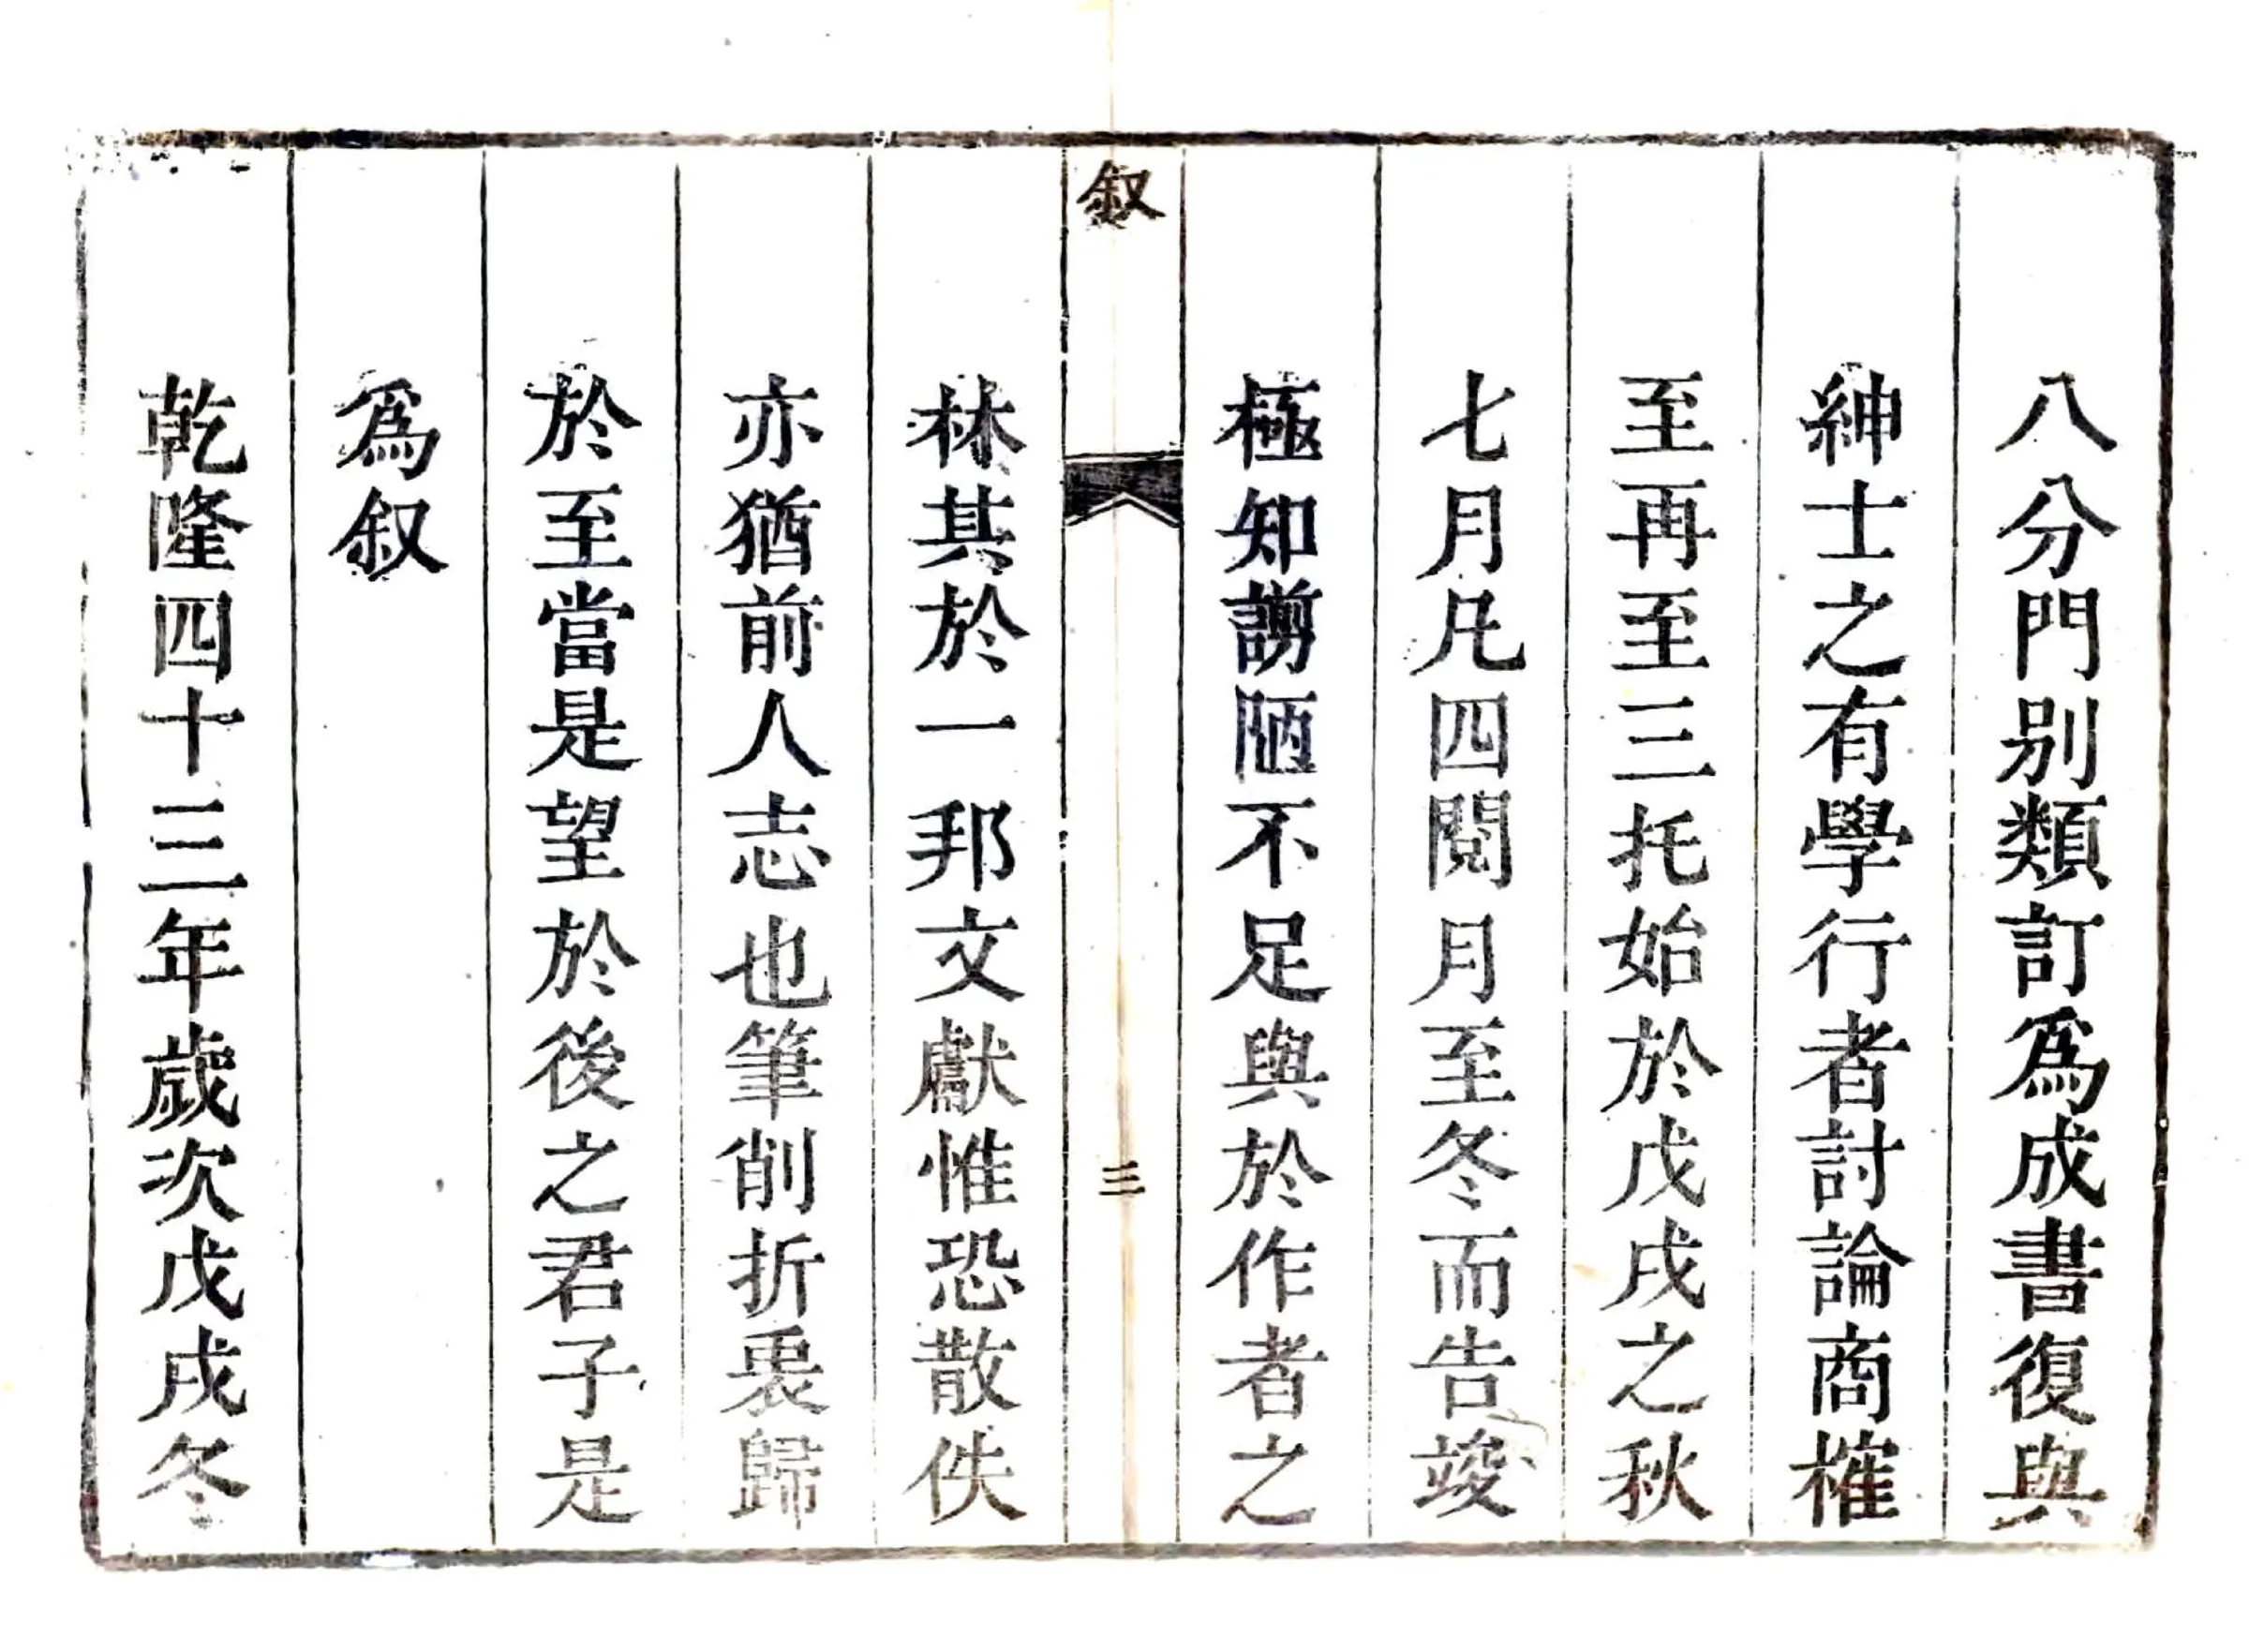 八分門別類訂爲成書復與
紳士之有學行者討論商榷
至再至三托始於戊戌之秋
七月凡四閱月至冬而告竣
極知謭陋不足與於作者之
叙
三
林其於一邦文獻惟恐散佚
亦猶前人志也筆削折衷歸
於至當是望於後之君子是
爲叙
乾隆四十三年歲次戊戌冬